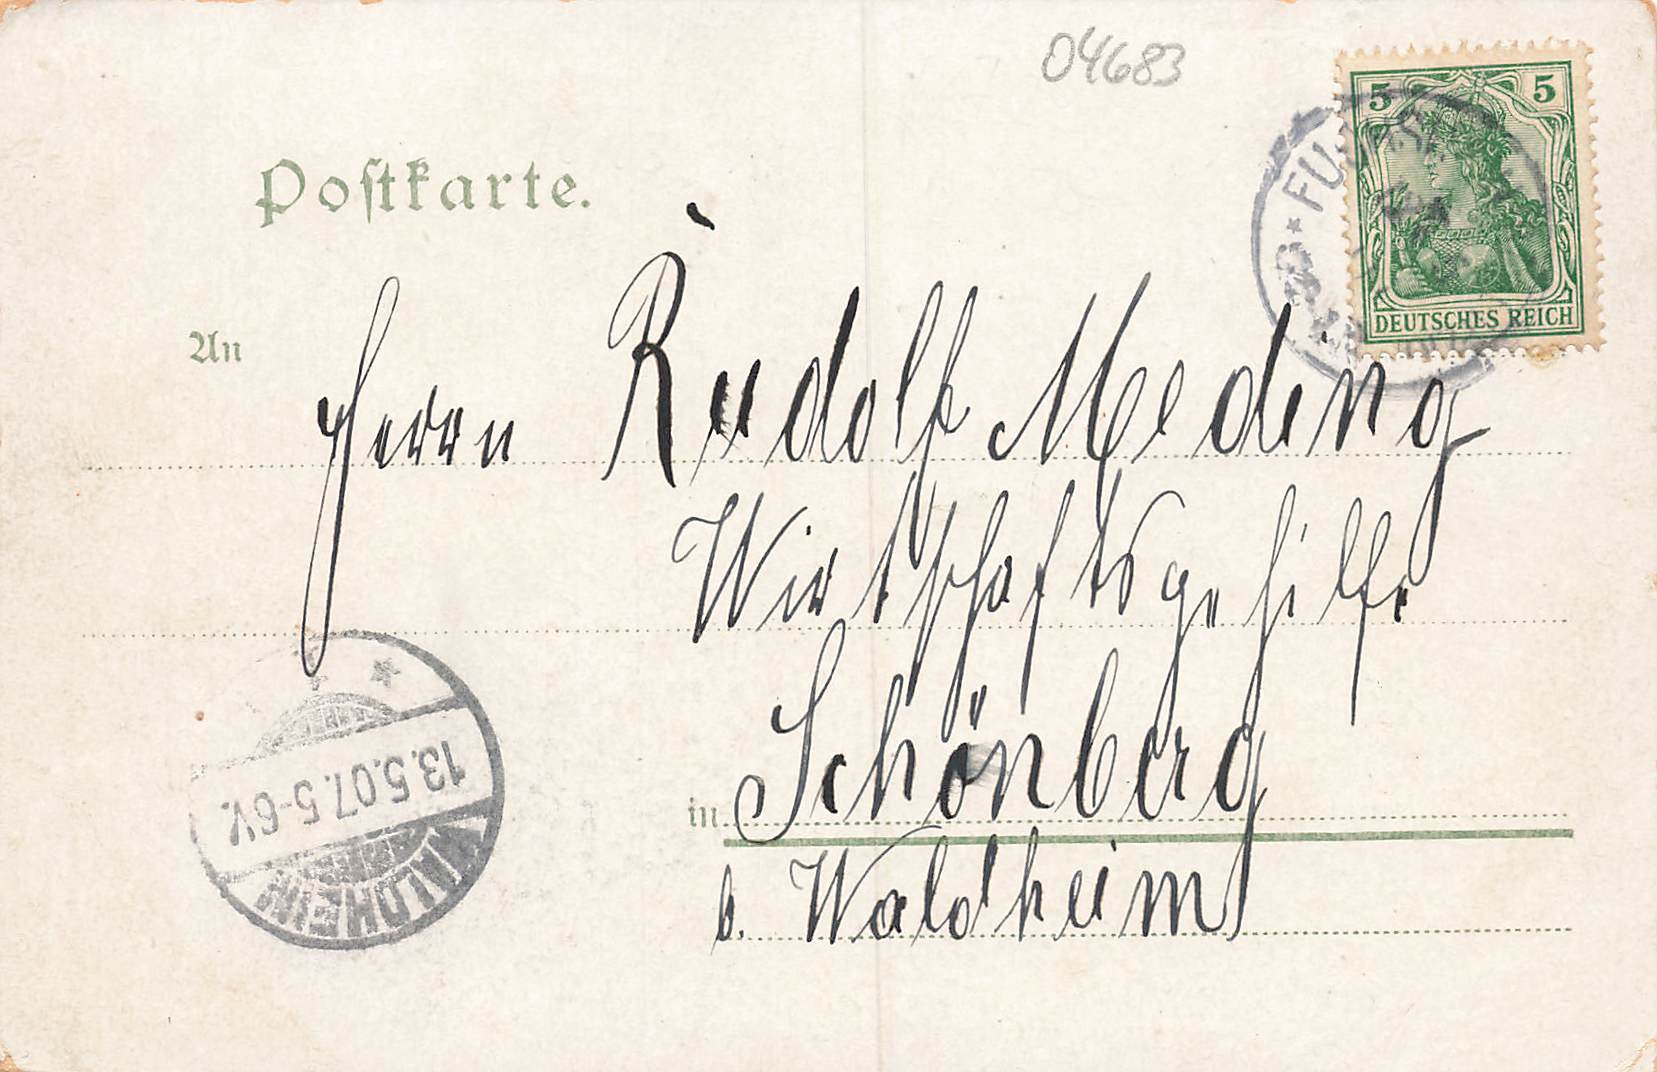 04683
5 5
DEUTSCHES REICH
Postkarte.
An
Herrn Rudolf Meding
Wirtschaftsgehilfe
in Schönberg
b. Waldheim
13.5.07.5-6V.
WALDHEIM